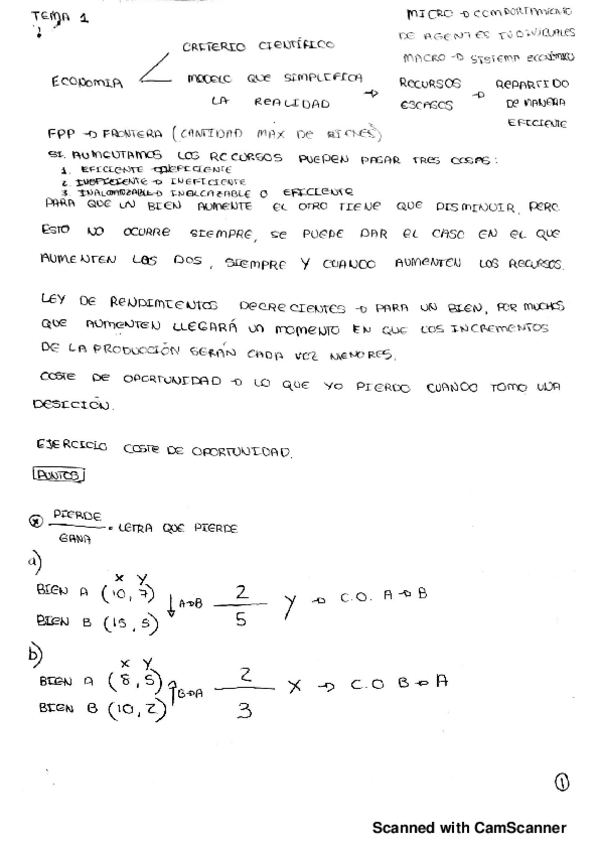 TEMA 1
MICRO → COMPORTAMIENTO
DE AGENTES INDIVIDUALES
MACRO → SISTEMA ECONÓMICO
CRITERIO CIENTÍFICO
ECONOMIA
MODELO QUE SIMPLIFICA
LA REALIDAD
→ RECURSOS ESCASOS → REPARTIDO DE MANERA EFICIENTE
FPP → FRONTERA (CANTIDAD MAX DE BIENES)
SI AUMENTAMOS LOS RECURSOS PUEDEN PASAR TRES COSAS:
1. EFICIENTE → INEFICIENTE
2. INEFICIENTE → INEFICIENTE
3. INALCANZABLE → INALCANZABLE O EFICIENTE
PARA QUE UN BIEN AUMENTE EL OTRO TIENE QUE DISMINUIR, PERO
ESTO NO OCURRE SIEMPRE, SE PUEDE DAR EL CASO EN EL QUE
AUMENTEN LOS DOS, SIEMPRE Y CUANDO AUMENTEN LOS RECURSOS.
LEY DE RENDIMIENTOS DECRECIENTES → PARA UN BIEN, POR MUCHOS
QUE AUMENTEN LLEGARÁ UN MOMENTO EN QUE LOS INCREMENTOS
DE LA PRODUCCIÓN SERÁN CADA VEZ MENORES.
COSTE DE OPORTUNIDAD → LO QUE YO PIERDO CUANDO TOMO UNA
DESICIÓN.
EJERCICIO COSTE DE OPORTUNIDAD.
PUNTOS
* PIERDE / GANA = LETRA QUE PIERDE
a)
X Y
BIEN A (10, 7)
BIEN B (15, 5)
↓ A→B 2/5 Y → C.O. A→B
b)
X Y
BIEN A (8, 5)
BIEN B (10, 2)
↑ B→A 2/3 X → C.O B→A
1
Scanned with CamScanner